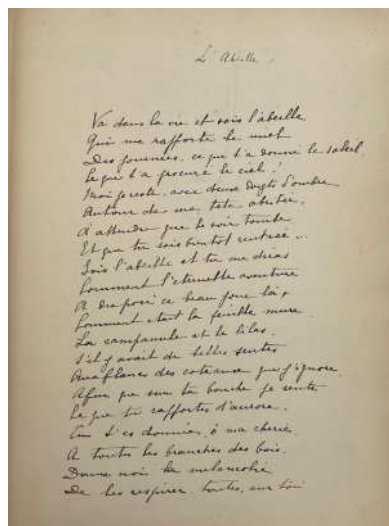 L'Abeille.
Va dans la vie et sois l'abeille
Qui me rapporte le miel
Des journées, ce que t'a donné le soleil
Ce que t'a procuré le ciel !
Moi je reste, avec deux doigts d'ombre
Autour de ma tête abritée,
d'attendre que le soir tombe
Et que tu sois bientôt rentrée ..
Sois l'abeille et tu me diras
Comment l'éternelle aventure
A disposé ce beau jour là,
Comment était la feuille mure
La campanule et le lilas.
S'il y avait de belles sentes
Aux flancs des coteaux que j'ignore.
Afin que sur ta bouche je sente
Ce que tu rapportes d'aurore.
Tu t'es donnée, ô ma chérie
A toutes les branches des bois.
Donne moi la mélancolie
De les respirer toutes, sur toi